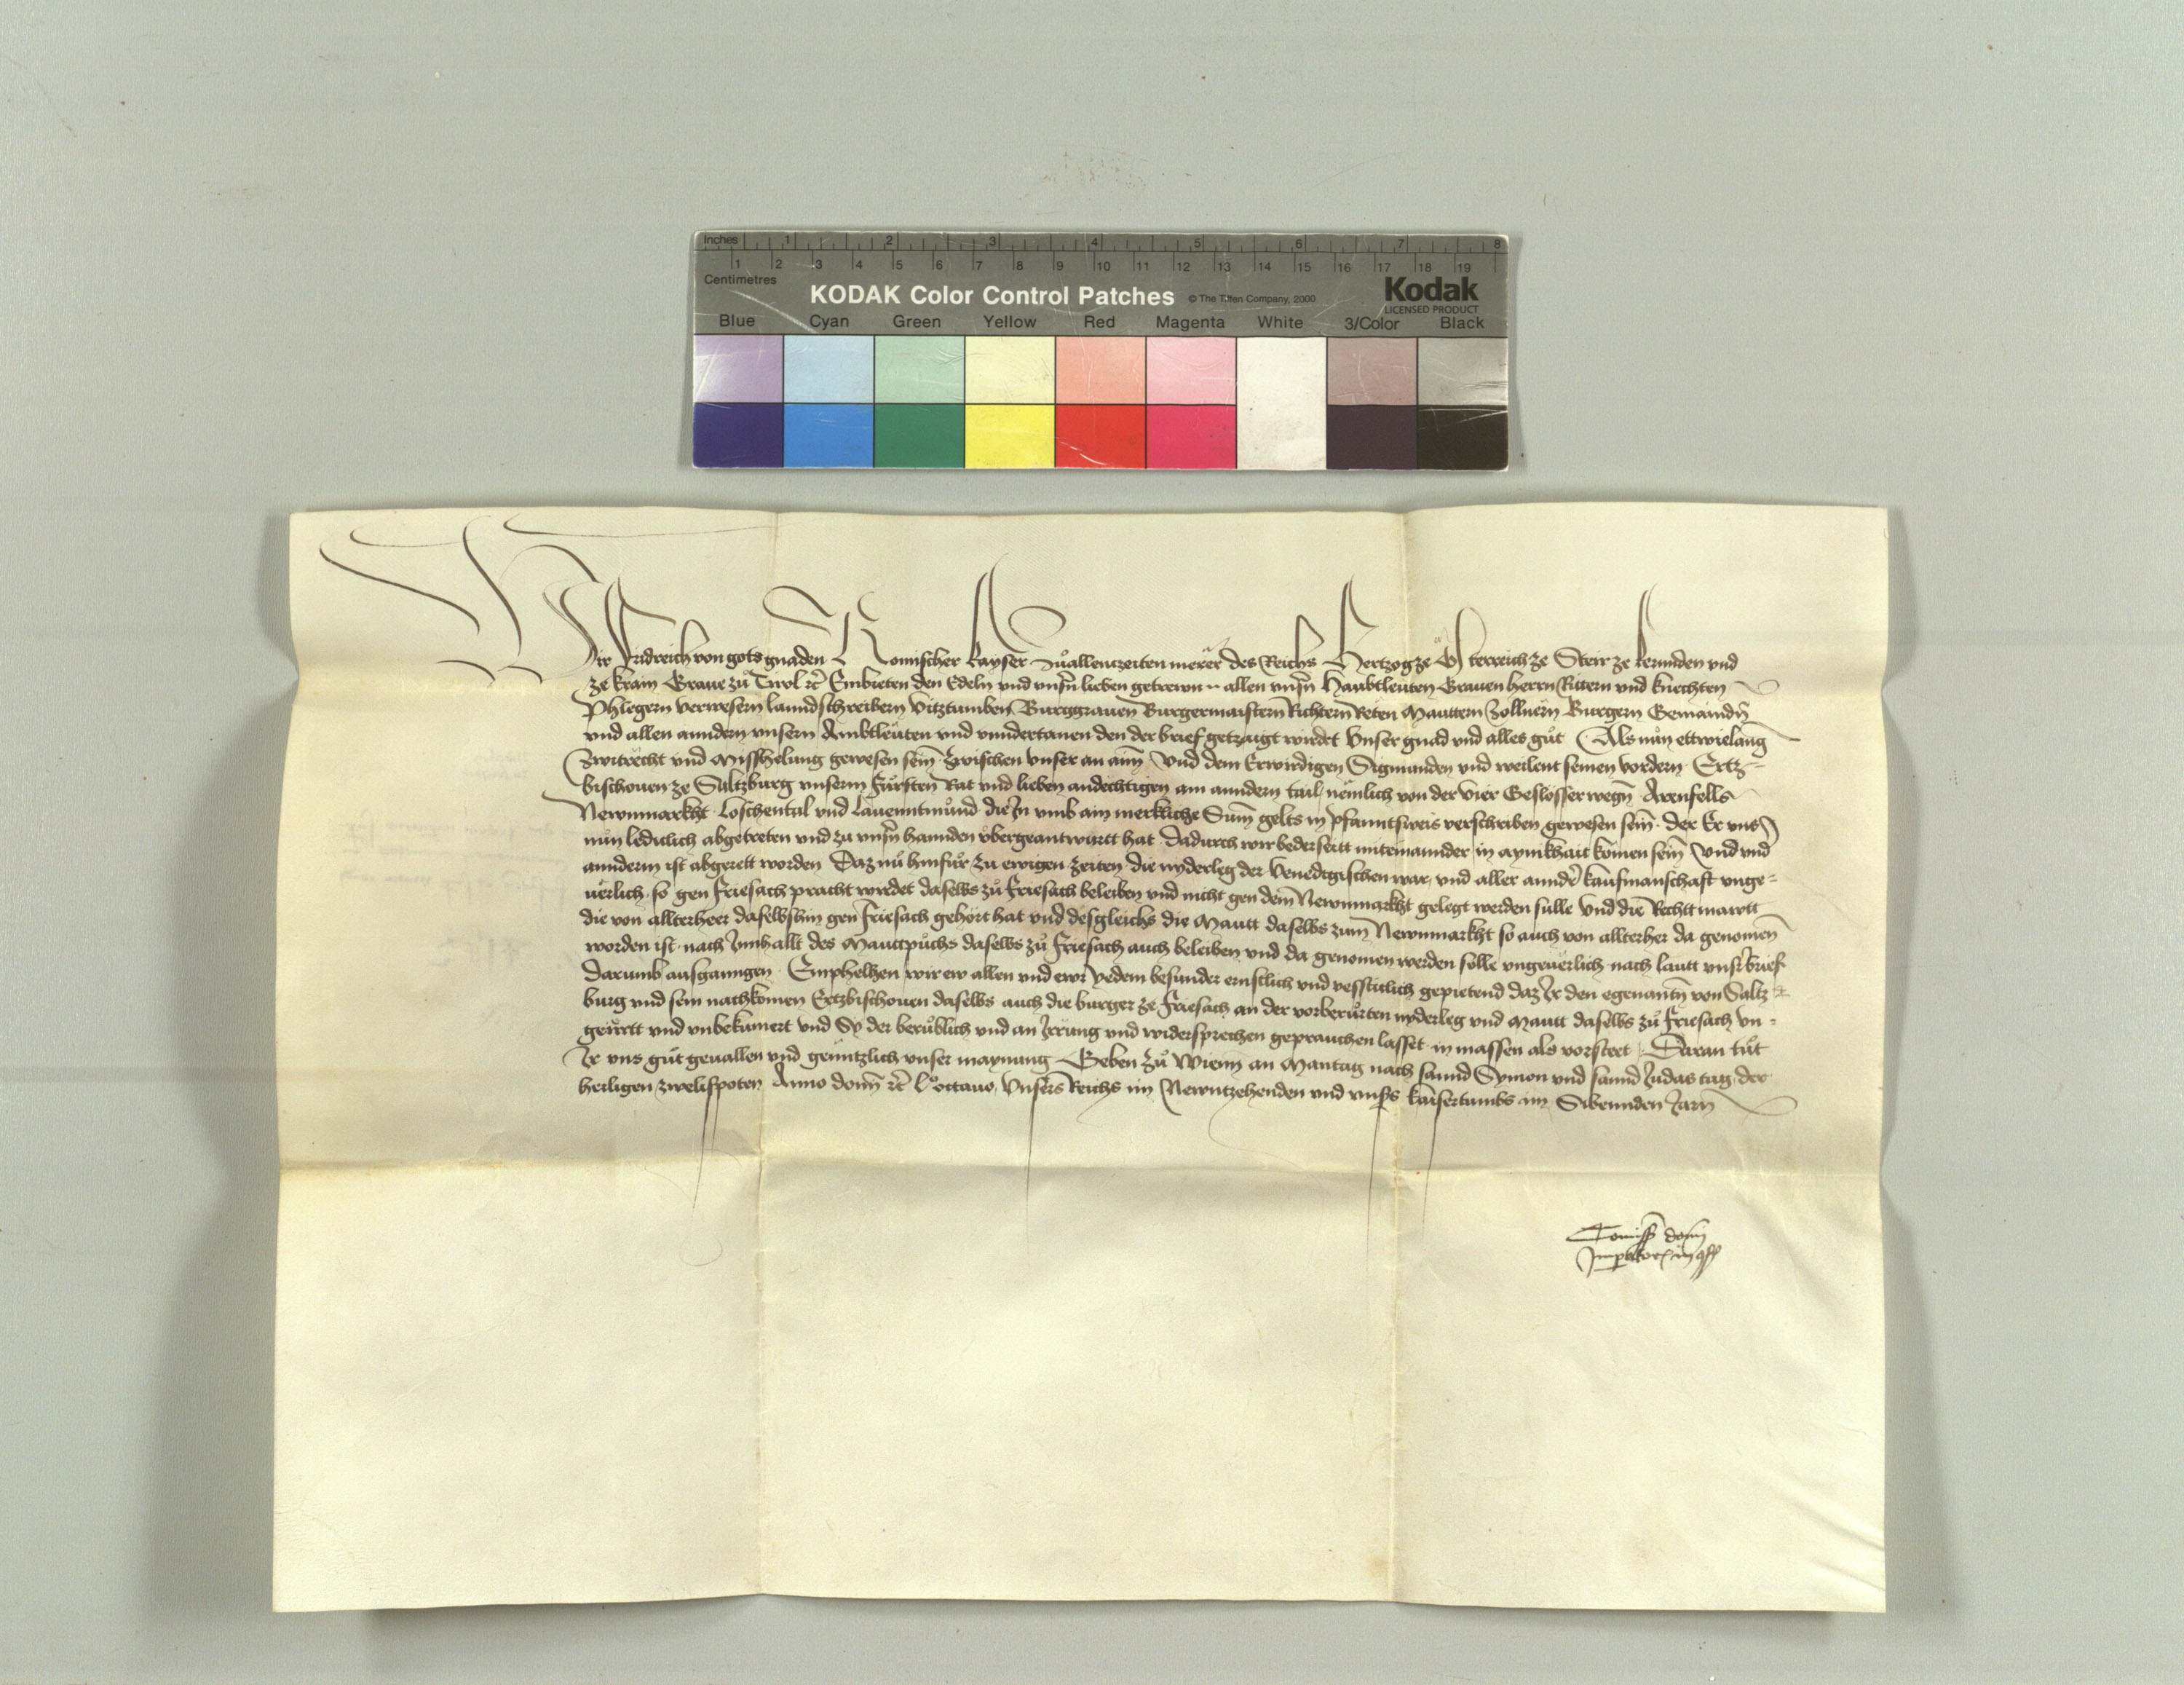 Inches 1 2 3 4 5 6 7 8
1 2 3 4 5 6 7 8 9 10 11 12 13 14 15 16 17 18 19
Centimetres
KODAK Color Control Patches © The Tiffen Company, 2000 Kodak
LICENSED PRODUCT
Blue Cyan Green Yellow Red Magenta White 3/Color Black
Wir Fridreich von gots gnaden Romischer Kayser Zuͦallenczeiten merer des Reichs Hertzog ze Osterreich ze Steir ze Kernnden vnd
ze Krain Graue zuͦ Tirol ꝛc̄ Embieten den Edeln vnd vnsn̄ lieben getrewn allen vnsn̄ Haubtleuten Grauen herrn Rittern vnd knechten
Phlegern verwesern lanndschreibern Vitztumben Burggrauen Burgermaistern Richtern Reten Mauttern Zollnern Burgern Gemaindn̄
vnd allen anndern vnsern Ambtleuten vnd vnndertanen den der brief getzaigt wirdet Vnser gnad vnd alles guͦt Als nuͦn ettwielang
Zwitrecht vnd Misshelung gewesen sein̄ Zwischen vnser an aim̄ Vnd dem Erwirdigen Sigmunden vnd weilent seinen vordern Ertz-
bischouen ze Saltzburg vnserm Fuͦrsten Rat vnd lieben andechtigen am anndern tail nemlich von der Vier Geslosser wegn̄ Arenfells
Newnmarkht Loschental vnd Lauenntmuͦnd die In vmb ain merkliche Sum̄ gelts in pfanntsweis verschriben gewesen sein̄ der Er vns
nuͦn lediclich abgetreten vnd zu vnsn̄ hannden vͦbergeantwurtt hat Dadurch wir bederseitt miteinannder in aynikhait komen sein̄ Vnd vnd
anndern ist abgerett worden Daz nuͦ hinfuͦr zu ewigen zeiten die nyderleg der Venedigischen war vnd aller annder̄ kaufmanschaft vnge-
uerlich so gen Friesach pracht wirdet daselbs zuͦ Friesach beleiben vnd nicht gen dem Newnmarkht gelegt werden sulle Vnd die Rechtt mawtt
die von allterheer daselbshin gen Friesach gehort hat vnd desgleichs die Mautt daselbs zum Newnmarkht so auch von allterher da genomen
worden ist nach Innhallt des Mauttpuͦchs daselbs zuͦ Friesach auch beleiben vnd da genomen werden solle vngeuerlich nach lautt vnsr̄ brief
darumb ausganngen Emphelhen wir ew allen vnd ewr yedem besunder ernstlich vnd vessticlich gepietend daz Ir den egenantn̄ von Saltz-
burg vnd sein nachkomen Ertzbischouen daselbs auch die burger ze Friesach an der vorberuͦrten nyderleg vnd Mautt daselbs zuͦ Friesach vn-
geirrtt vnd vnbekumert vnd Sy der beruͦblich vnd an Irrung vnd widersprechen geprauchen lasset in massen als vorsteet Daran tuͦt
Ir vns guͦt geuallen vnd genntzlich vnser maynung Geben Zuͦ Wienn an Mantag nach sannd Symon vnd sannd Judas tag der
heiligen zwelifpoten Anno domī ꝛc̄ Lᵒ octauo Vnsers Reichs im Newntzehenden vnd vnsers kaisertumbs im Sibennden Jarn
Comiss̄ domī
Imp̄atoris in 9s̄